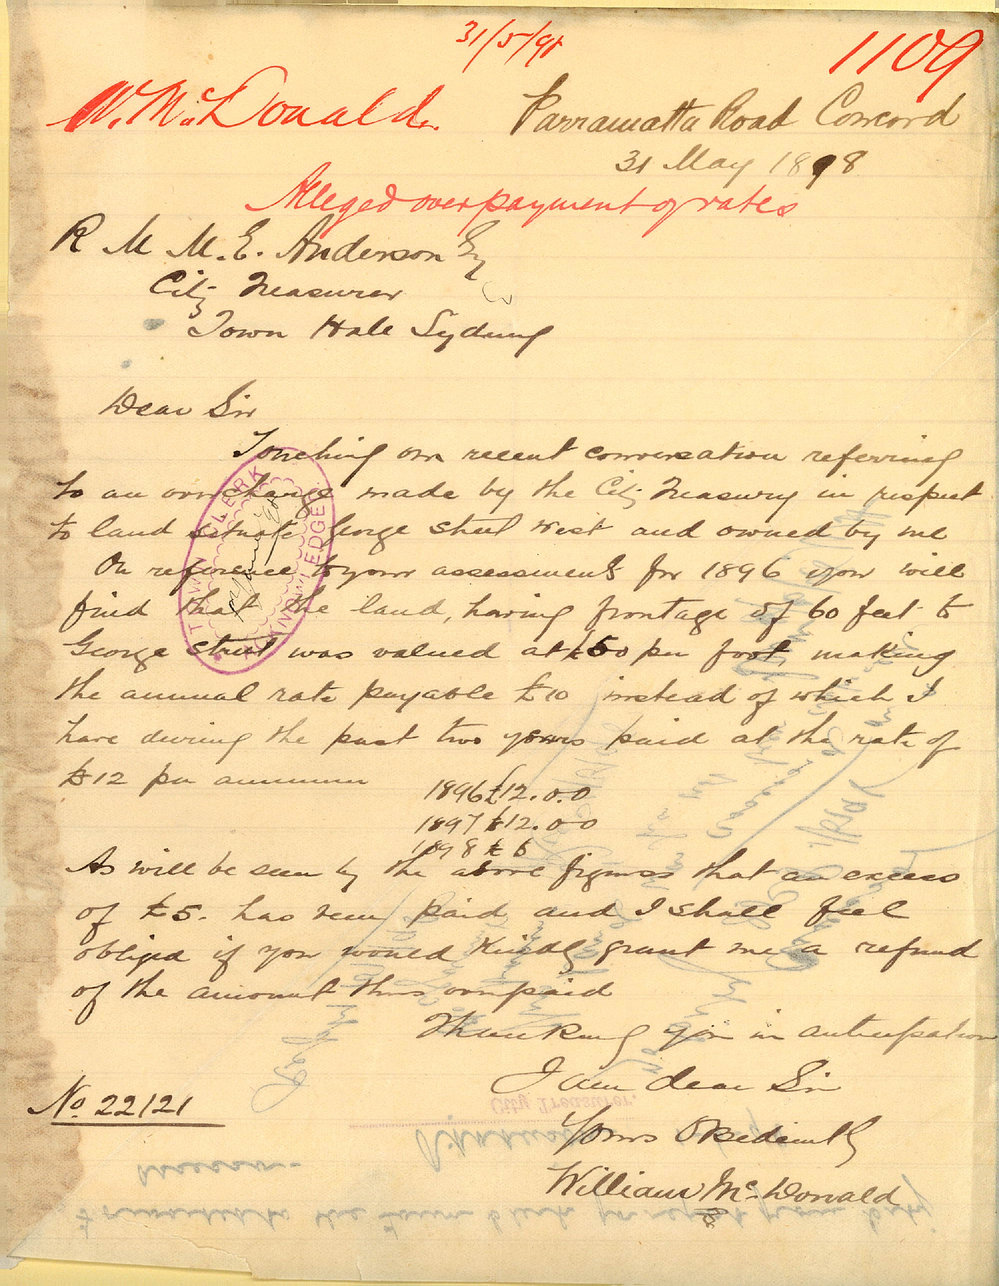 31/5/98
1109
W. McDonald.
Parramatta Road Concord
31 May 1898
Alleged over payment of rates
R M M.E. Anderson Esq
City Treasurer
Town Hall Sydney
Dear Sir
Touching our recent conversation referring
to an overcharge made by the City Treasury in respect
to land situate George Street West and owned by me
On reference to your assessments for 1896 you will
find that the land, having frontage of 60 feet to
George Street was valued at £50 per foot making
the annual rate payable £10 instead of which I
have during the past two years paid at the rate of
£12 per annum
1896 £12.0.0
1897 £12.0.0
1898 £6
As will be seen by the above figures that an excess
of £5. has been paid and I shall feel
obliged if you would kindly grant me a refund
of the amount thus overpaid
Thanking you in anticipation
I am dear Sir
Yours Obediently
William McDonald
No 22121
TOWN CLERK
ACKNOWLEDGED
City Treasurer.